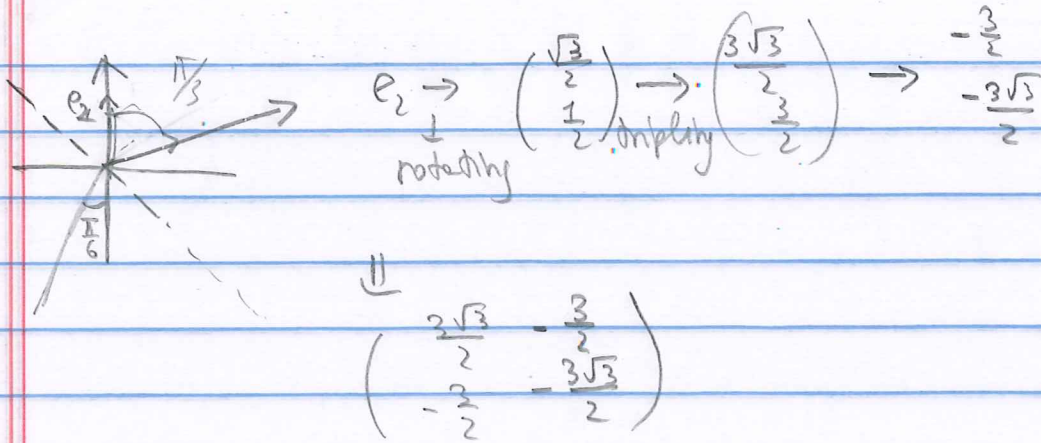 e₂ π/3
e₂ → (√3/2 1/2) → (3√3/2 3/2) → -3/2 -3√3/2
↓ rotating tripling
π/6
⇓
(3√3/2 -3/2
-3/2 -3√3/2)